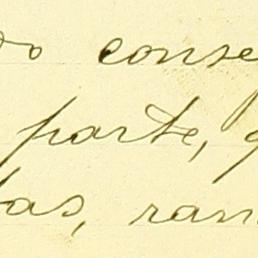 conse
parte,
tas, ran